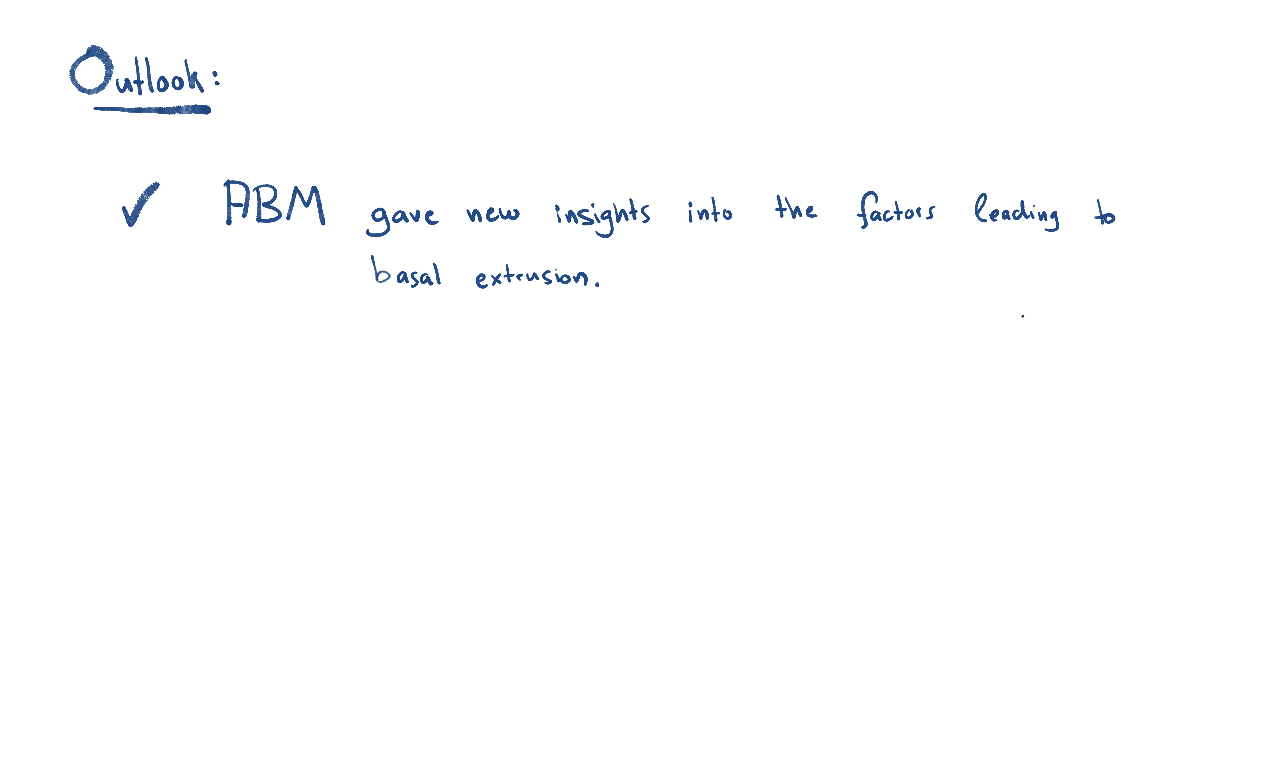 Outlook:
✓ ABM gave new insights into the factors leading to
basal extrusion.